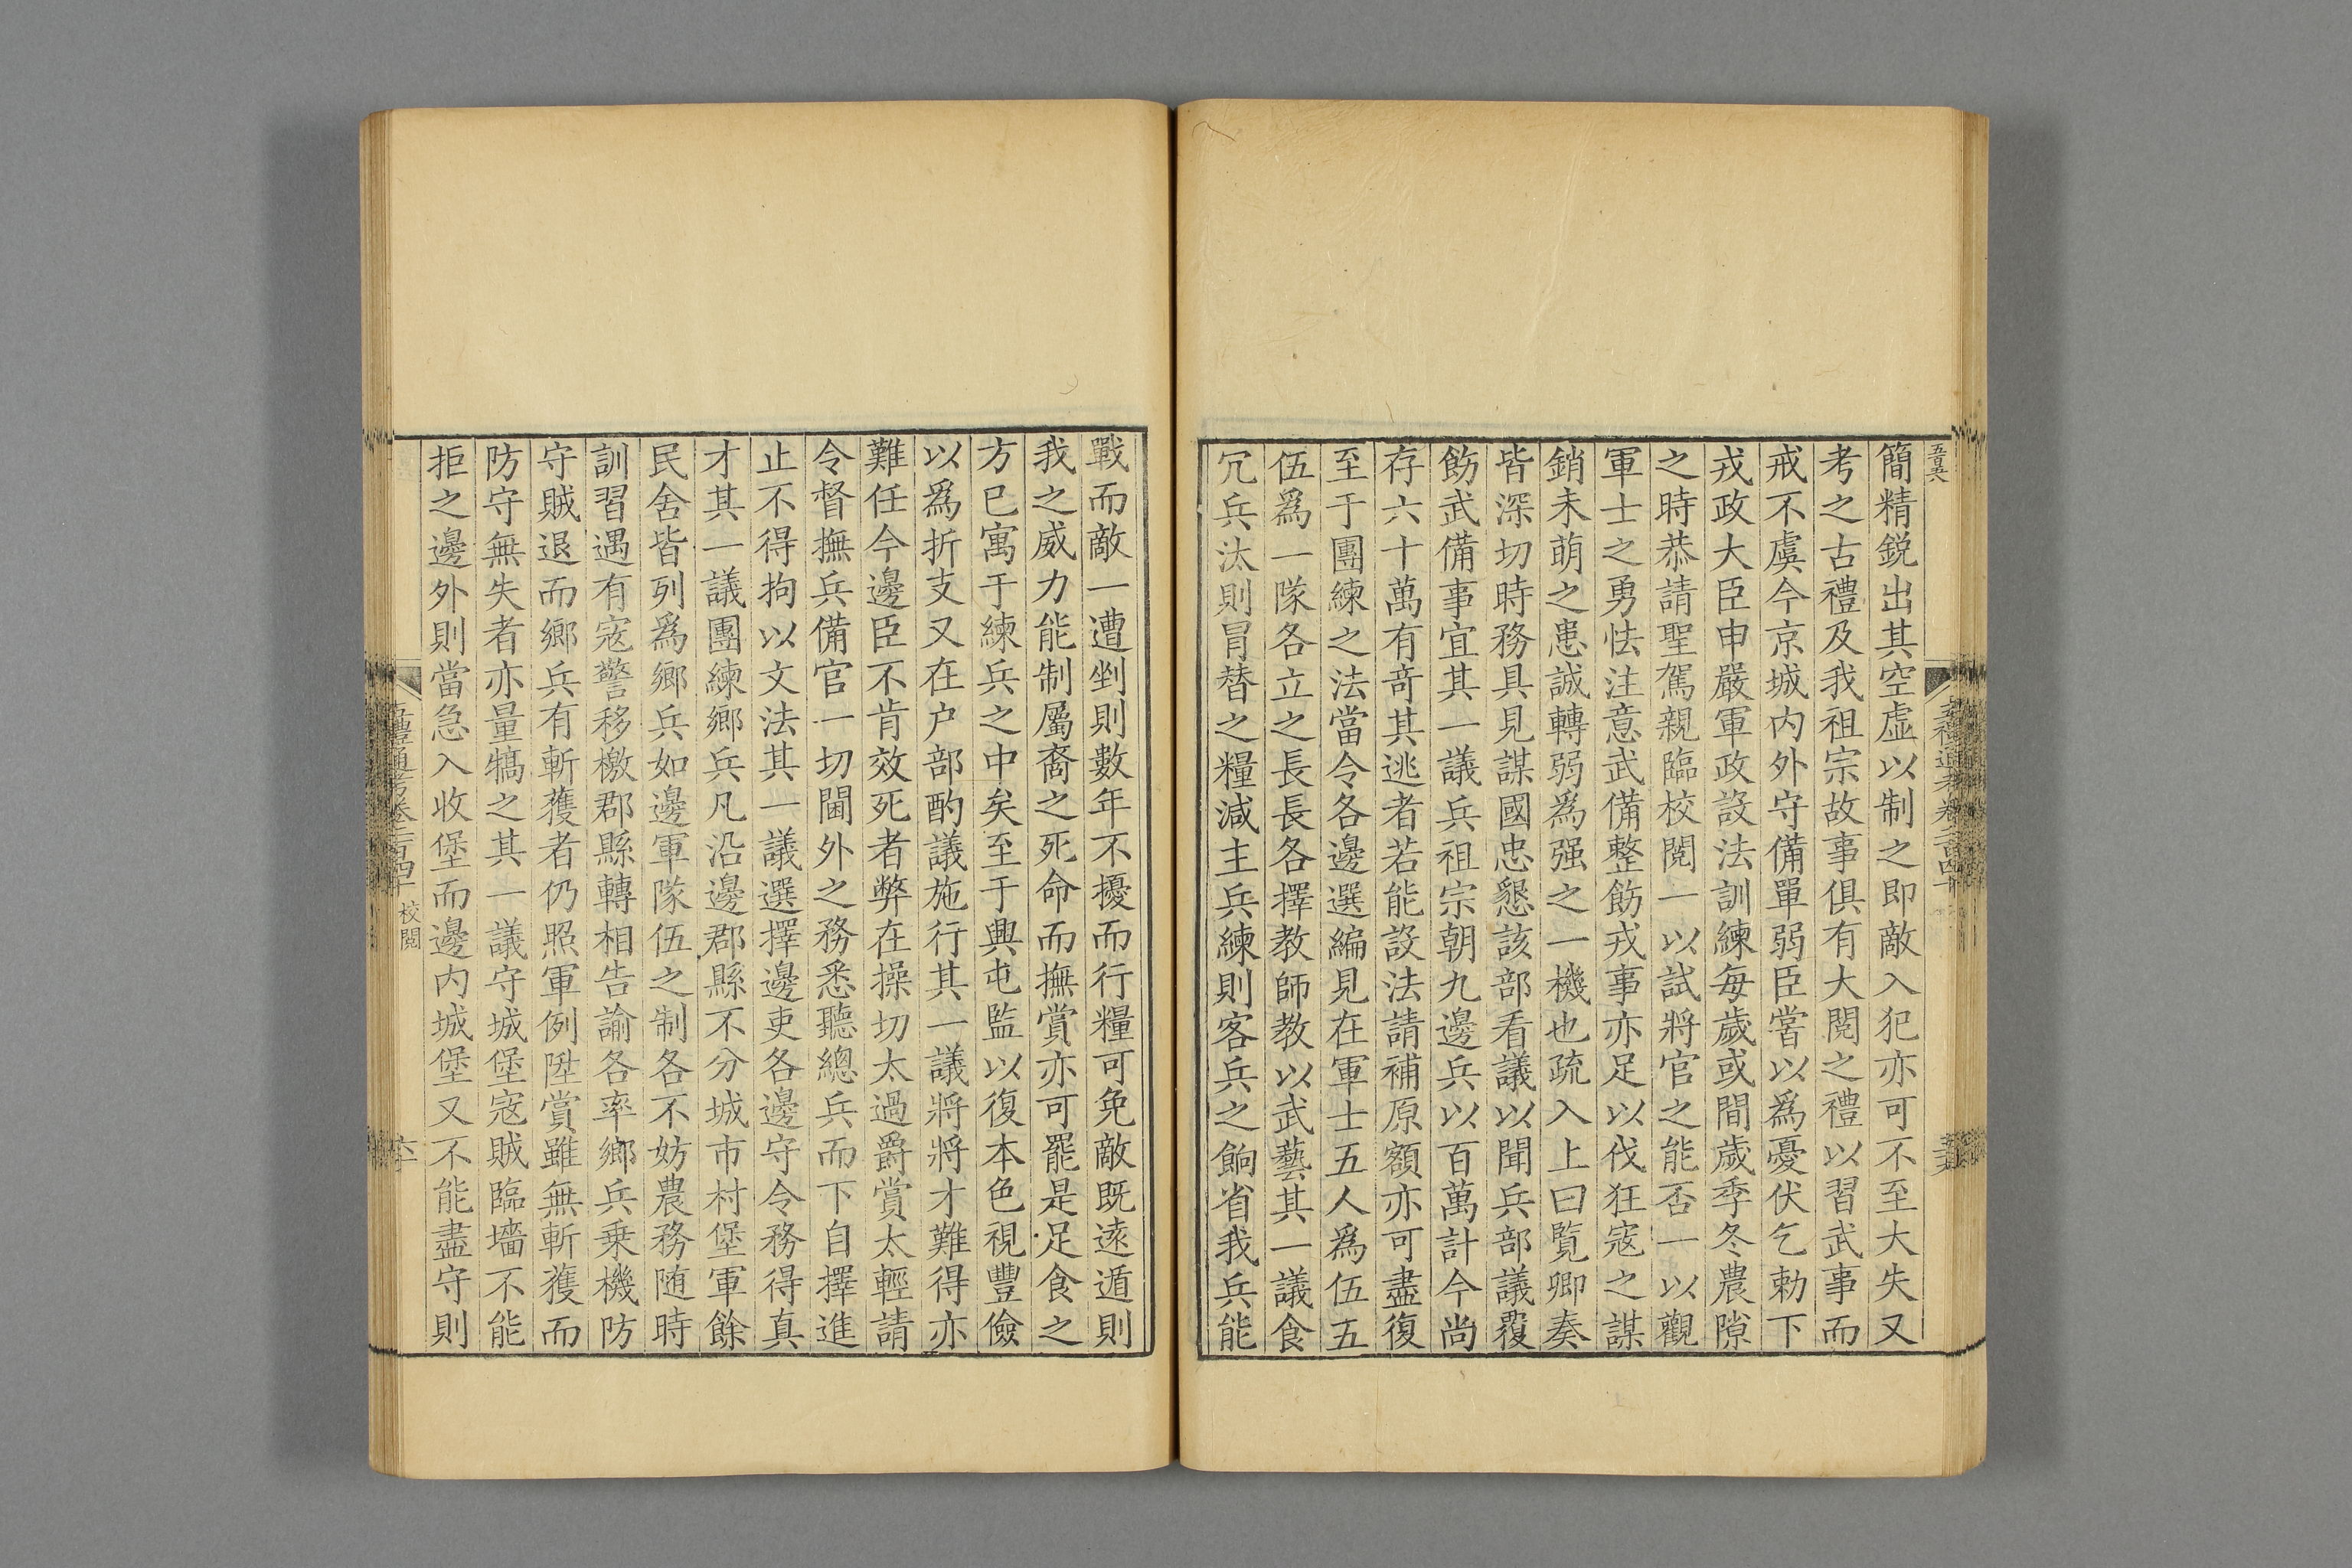 簡精鋭出其空虛以制之即敵入犯亦可不至大失又
考之古禮及我祖宗故事俱有大閱之禮以習武事而
戒不虞今京城内外守備單弱臣嘗以為憂伏乞勅下
戎政大臣申嚴軍政設法訓練每歲或間歲季冬農隙
之時恭請聖駕親臨校閱一以試將官之能否一以觀
軍士之勇怯注意武備整飭戎事亦足以伐狂寇之謀
銷未萌之患誠轉弱爲强之一機也疏入上曰覧卿奏
皆深切時務具見謀國忠懇該部看議以聞兵部議覆
飭武備事宜其一議兵祖宗朝九邊兵以百萬計今尚
存六十萬有竒其逃者若能設法請補原額亦可盡復
至于團練之法當令各邊選編見在軍士五人爲伍五
伍爲一隊各立之長長各擇教師教以武藝其一議食
冗兵汰則冐替之糧減主兵練則客兵之餉省我兵能
戰而敵一遭剉則數年不擾而行糧可免敵既遠遁則
我之威力能制屬裔之死命而撫賞亦可罷是足食之
方已寓于練兵之中矣至于興屯監以復本色視豐儉
以爲折支又在户部酌議施行其一議將將才難得亦
難任今邊臣不肯效死者弊在操切太過爵賞太輕請
令督撫兵備官一切閫外之務悉聽總兵而下自擇進
止不得拘以文法其一議選擇邊吏各邊守令務得真
才其一議團練鄉兵凡沿邊郡縣不分城市村堡軍餘
民舍皆列爲鄉兵如邊軍隊伍之制各不妨農務随時
訓習遇有寇警移檄郡縣轉相告諭各率鄉兵乗機防
守賊退而鄉兵有斬獲者仍照軍例陞賞雖無斬獲而
防守無失者亦量犒之其一議守城堡寇賊臨墻不能
拒之邊外則當急入收堡而邊内城堡又不能盡守則
五禮通考卷二百四十
校閱